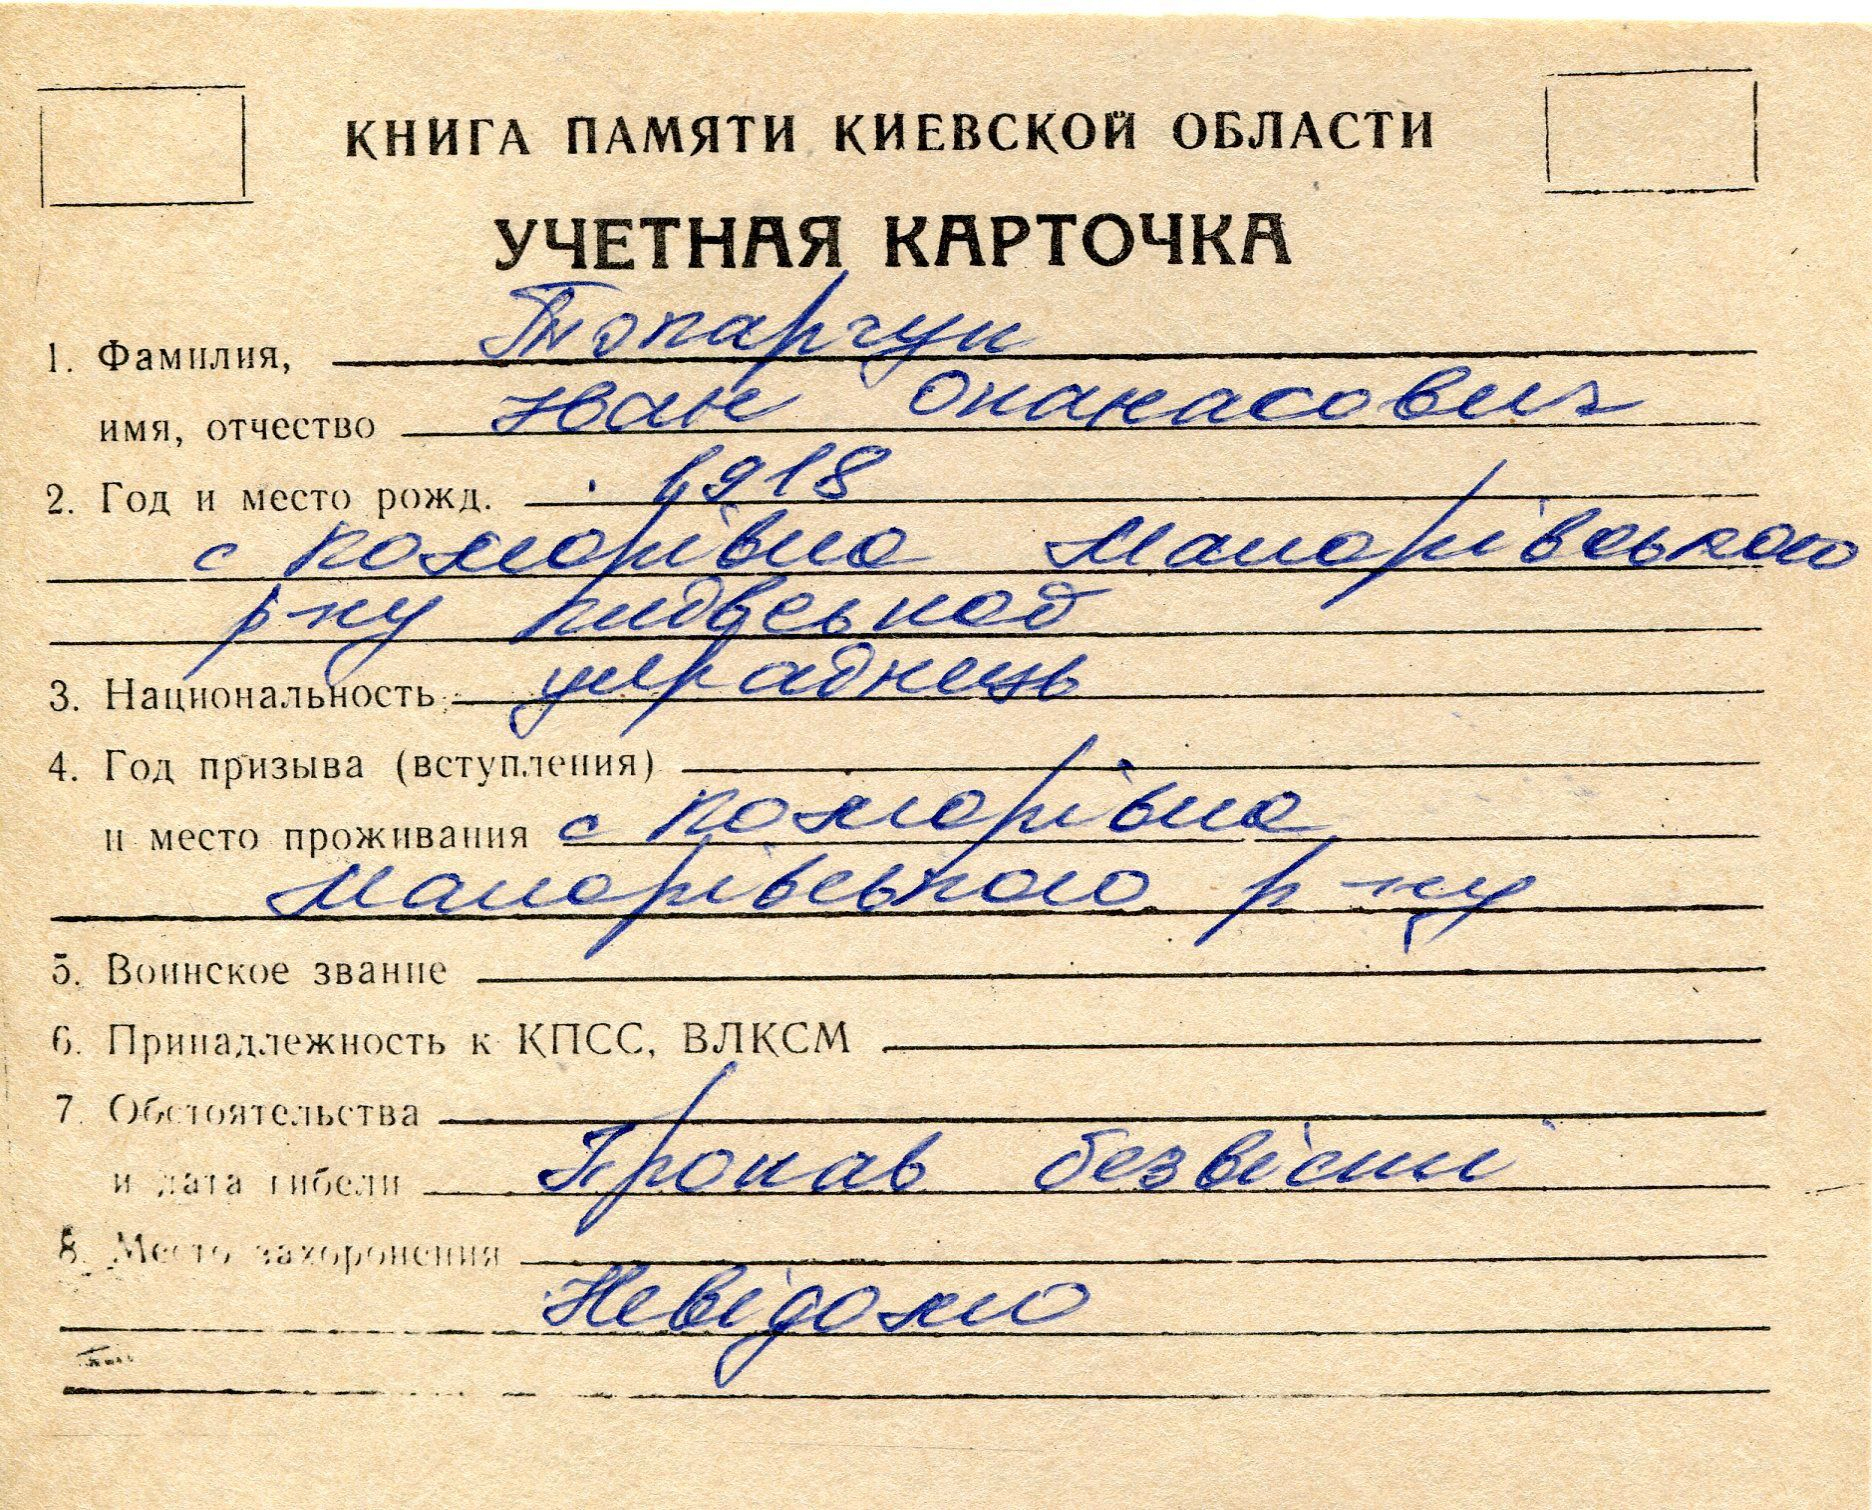 КНИГА ПАМЯТИ КИЕВСКОЙ ОБЛАСТИ
УЧЕТНАЯ КАРТОЧКА
1. Фамилия, Топарчук
имя, отчество Іван Опанасович
2. Год и место рожд. 1918
с Комарівка Макарівського
р-ну Київської
3. Национальность українець
4. Год призыва (вступления)
и место проживания с Комарівка
Макарівського р-ну
5. Воинское звание
6. Принадлежность к КПСС, ВЛКСМ
7. Обстоятельства
и дата гибели Пропав безвісти
8. Место захоронения
Невідомо